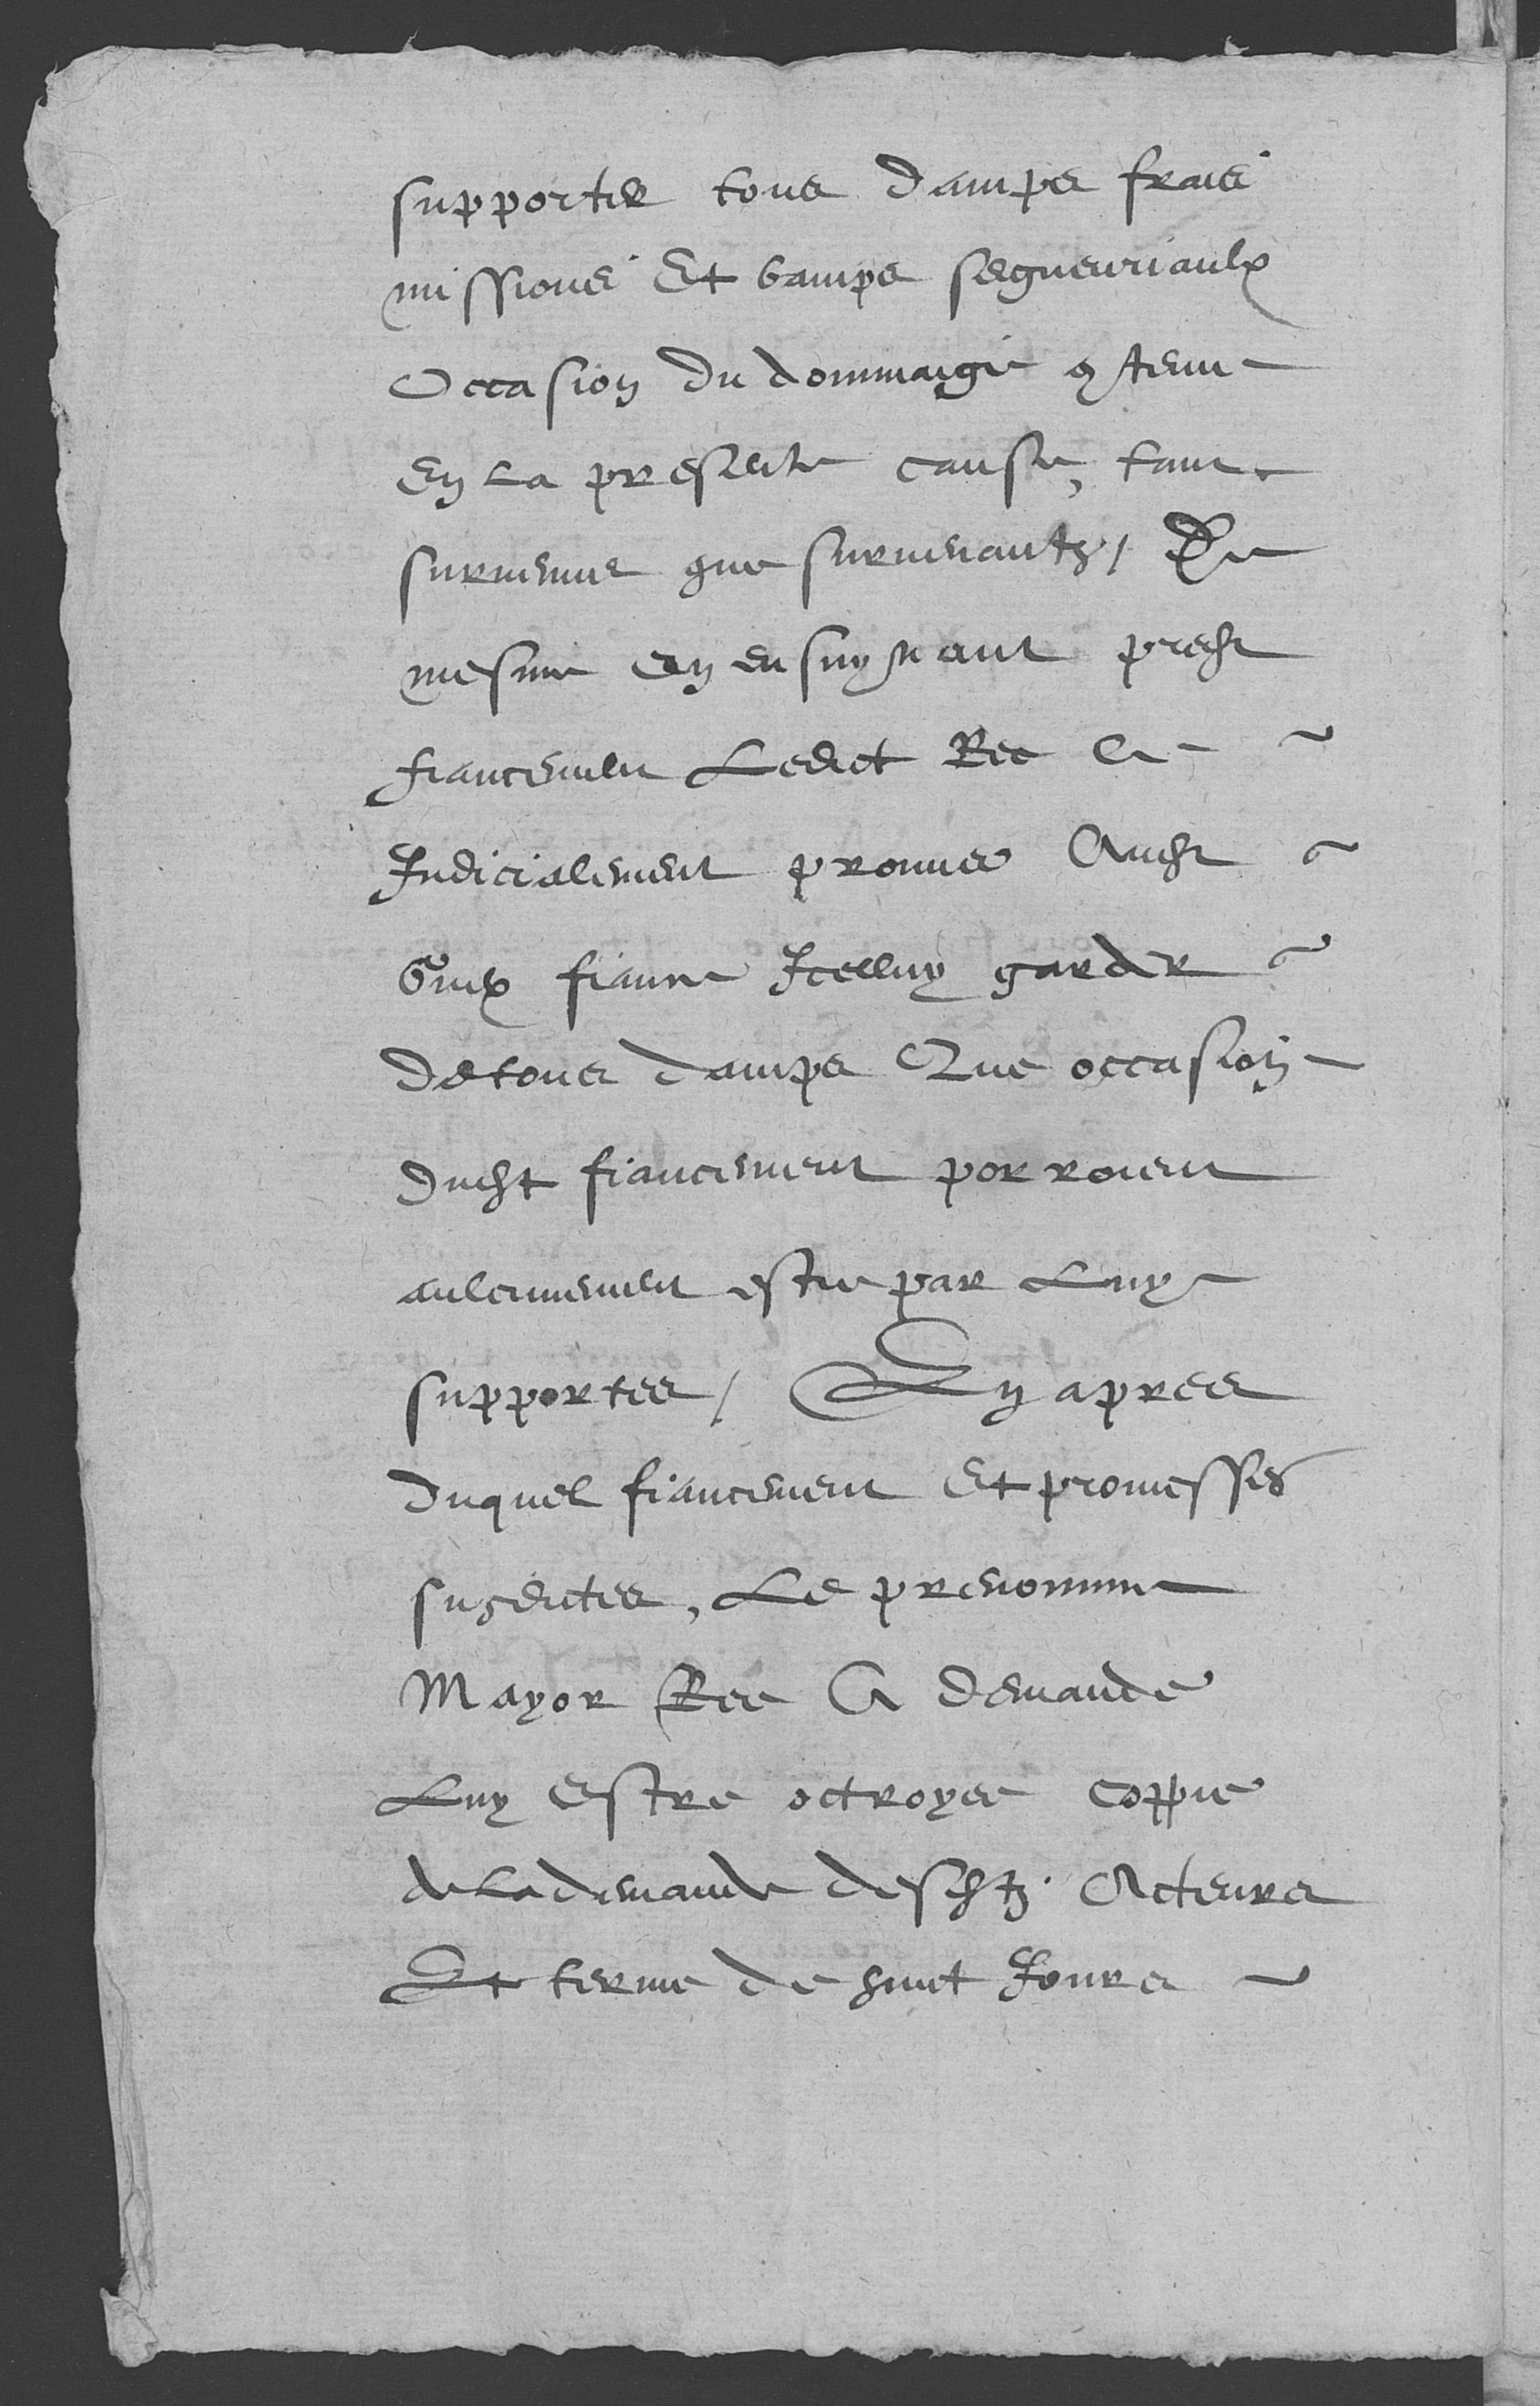 supporter tous damps frais
missions Et bamps segneuriaulx
Occasion du dommaige 9tenu
En la presente cause, tant
survenus que survenantz / De
mesme en ensuyvant predt
fiancement Ledict Ree a
Judicialement promis Audt
fiance Icelluy garder
de tous damps Que occasion
dudt fiancement porroient
aulcunement estre par Luy
supportes / En apres
duquel fiancement Et promesses
susdictes, Le prenomme
Mayor Ree A demande
Luy Estre octroyee coppie
de la demande desdtz Acteurs
Et terme de huict Jours